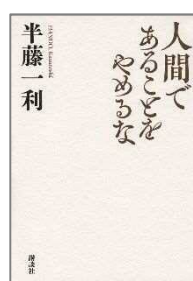 人間で
あることを
やめるな
半藤一利
HANDO Kazutoshi
講談社